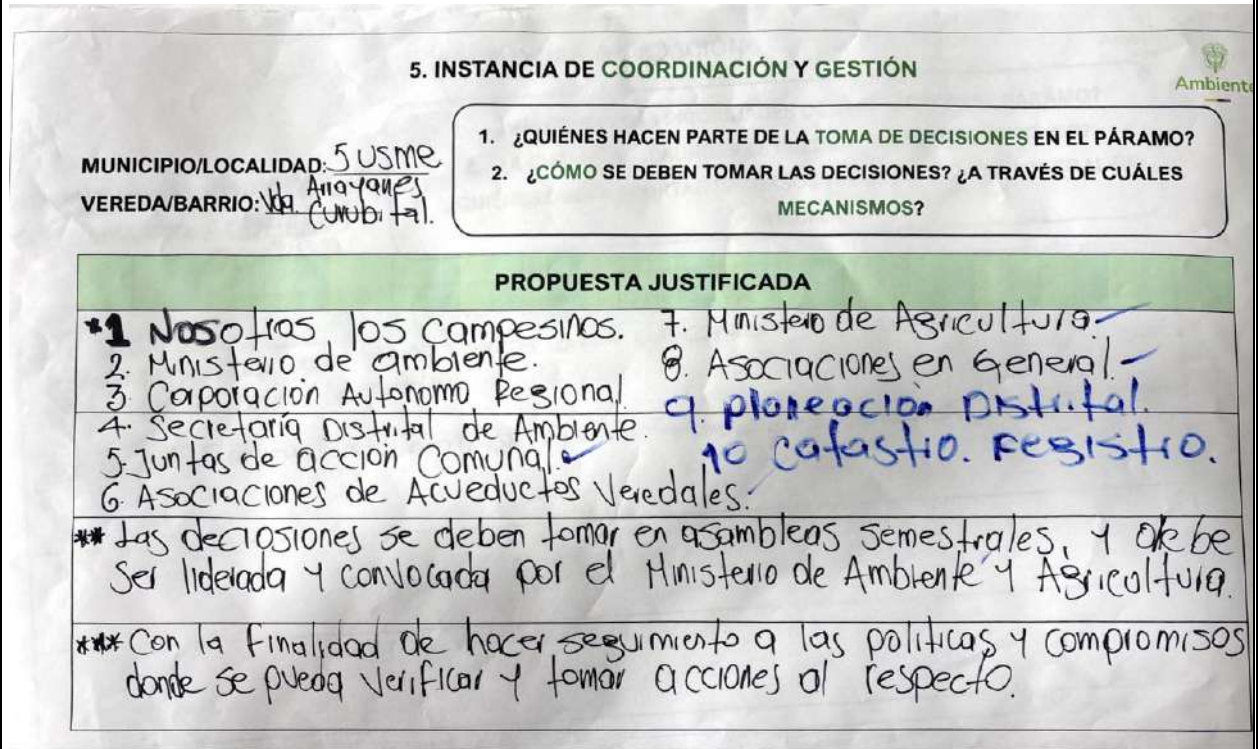 5. INSTANCIA DE COORDINACIÓN Y GESTIÓN
Ambiente
MUNICIPIO/LOCALIDAD: 5 USME
VEREDA/BARRIO: Vda. Arrayanes
Curubital.
1. ¿QUIÉNES HACEN PARTE DE LA TOMA DE DECISIONES EN EL PÁRAMO?
2. ¿CÓMO SE DEBEN TOMAR LAS DECISIONES? ¿A TRAVÉS DE CUÁLES
MECANISMOS?
PROPUESTA JUSTIFICADA
*1 Nosotros los campesinos.
2. Mnisterio de ambiente.
3. Corporación Autonomo Regional
4. Secretaría Distrital de Ambiente.
5. Juntas de acción Comunal.
6. Asociaciones de Acueductos Veredales.
7. Ministerio de Agricultura.
8. Asociaciones en General.
9. planeación Distrital.
10 catastro. registro.
** Las deciosiones se deben tomar en asambleas semestrales, y debe
ser liderada y convocada por el Ministerio de Ambiente y Agricultura.
*** Con la finalidad de hacer seguimiento a las politicas y compromisos
donde se pueda verificar y tomar acciones al respecto.